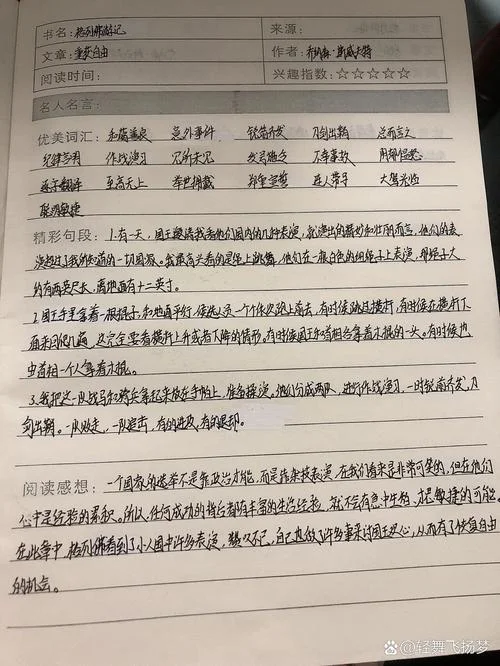 书名：格列佛游记 来源：
文章：重获自由 作者：乔纳森·斯威夫特
阅读时间： 兴趣指数：☆☆☆☆☆
名人名言：
优美词汇：和蔼善良 意外事件 钝箭齐发 刀剑出鞘 总而言之
纪律严明 作战演习 见所未见 发号施令 不幸事故 用智信愁
逐字翻译 至高无上 举世拥戴 郑重宣誓 连人带马 大驾光临
聪明敏捷
精彩句段：1.有一天，国王邀请我看他们国内的几种表演，就演出的精妙和壮丽而言，他们的表
演超过了我所知道的一切国家。我最高兴看的是绳上跳舞，他们在一根白色的细绳子上表演，那绳子大
约有两英尺长，离地面有十二英寸。
2.国王手里拿着一根棍子，和地面平行，候选人员一个个依次跑上前去，有时候跳过横杆，有时候在横杆下
爬来回很几遍，这完全要看横杆上升或者下降的情形。有时候国王和首相各拿着木棍的一头。有时候也
由首相一个人拿着木棍。
3.我把这一队战马和骑兵拿起来放在手帕上，准备操演，他们分成两队，进行作战演习，一时钝箭齐发，刀
剑出鞘。一队败走，一队追击，有的进攻，有的退却。
阅读感想：一个国家的选举不是靠政治才能，而是靠杂技表演，在我们看来是非常可笑的，但在他们
心中是经验的累积。所以，任何成功的背后都有丰富的生活经验，就不会有急中生智，才思敏捷的可能。
在此章中，格列佛看到了小人国中许多表演，赞叹不已，自己也做了许多事来讨国王欢心，从而有了恢复自由
的机会。
轻舞飞扬梦